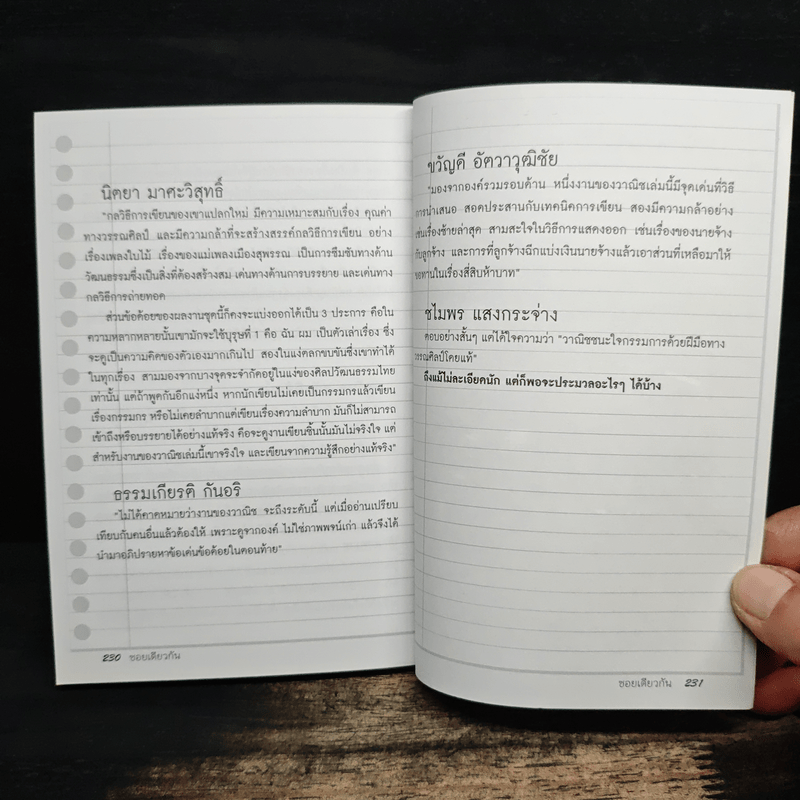 นิตยา มาศะวิสุทธิ์
"กลวิธีการเขียนของเขาแปลกใหม่ มีความเหมาะสมกับเรื่อง คุณค่า
ทางวรรณศิลป์ และมีความกล้าที่จะสร้างสรรค์กลวิธีการเขียน อย่าง
เรื่องเพลงใบไม้ เรื่องของแม่เพลงเมืองสุพรรณ เป็นการซึมซับทางด้าน
วัฒนธรรมซึ่งเป็นสิ่งที่ต้องสร้างสม เด่นทางด้านการบรรยาย และเด่นทาง
กลวิธีการถ่ายทอด
ส่วนข้อด้อยของผลงานชุดนี้ก็คงจะแบ่งออกได้เป็น 3 ประการ คือใน
ความหลากหลายนั้นเขามักจะใช้บุรุษที่ 1 คือ ฉัน ผม เป็นตัวเล่าเรื่อง ซึ่ง
จะดูเป็นความคิดของตัวเองมากเกินไป สองในแง่ตลกขบขันซึ่งเขาทำได้
ในทุกเรื่อง สามมองจากบางจุดจะจำกัดอยู่ในแง่ของศิลปวัฒนธรรมไทย
เท่านั้น แต่ถ้าพูดกันอีกแง่หนึ่ง หากนักเขียนไม่เคยเป็นกรรมกรแล้วเขียน
เรื่องกรรมกร หรือไม่เคยลำบากแต่เขียนเรื่องความลำบาก มันก็ไม่สามารถ
เข้าถึงหรือบรรยายได้อย่างแท้จริง คือจะดูงานเขียนชิ้นนั้นมันไม่จริงใจ แต่
สำหรับงานของวาณิชเล่มนี้เขาจริงใจ และเขียนจากความรู้สึกอย่างแท้จริง"
ธรรมเกียรติ กันอริ
"ไม่ได้คาดหมายว่างานของวาณิช จะถึงระดับนี้ แต่เมื่ออ่านเปรียบ
เทียบกับคนอื่นแล้วต้องให้ เพราะดูจากองค์ ไม่ใช่ภาพพจน์เก่า แล้วจึงได้
นำมาอภิปรายหาข้อเด่นข้อด้อยในตอนท้าย"
230 ซอยเดียวกัน
ขวัญดี อัตวาวุฒิชัย
"มองจากองค์รวมรอบด้าน หนึ่งงานของวาณิชเล่มนี้มีจุดเด่นที่วิธี
การนำเสนอ สอดประสานกับเทคนิคการเขียน สองมีความกล้าอย่าง
เช่นเรื่องซ้ายล่าสุด สามสะใจในวิธีการแสดงออก เช่นเรื่องของนายจ้าง
กับลูกจ้าง และการที่ลูกจ้างฉีกแบ่งเงินนายจ้างแล้วเอาส่วนที่เหลือมาให้
ขอทานในเรื่องสี่สิบห้าบาท"
ชไมพร แสงกระจ่าง
ตอบอย่างสั้นๆ แต่ได้ใจความว่า "วาณิชชนะใจกรรมการด้วยฝีมือทาง
วรรณศิลป์โดยแท้"
ถึงแม้ไม่ละเอียดนัก แต่ก็พอจะประมวลอะไรๆ ได้บ้าง
ซอยเดียวกัน 231